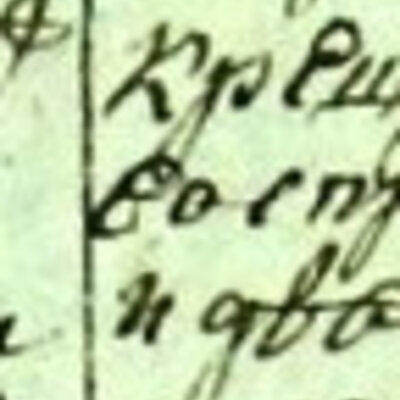 Крещ
воспр
и два